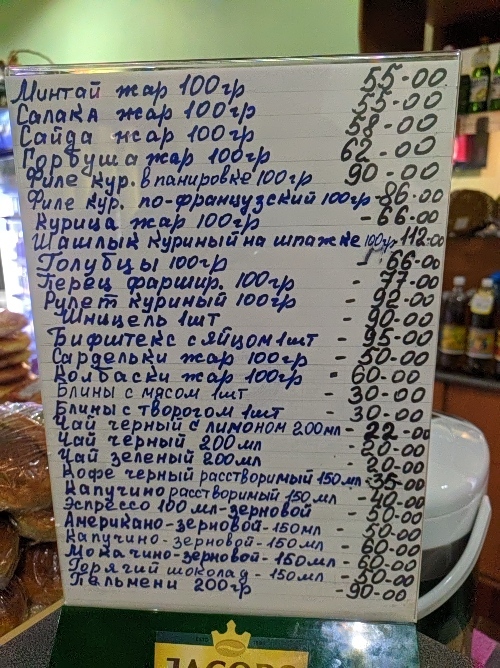 Минтай жар 100гр 55-00
Салака жар 100гр 55-00
Сайда жар 100гр 58-00
Горбуша жар 100гр 62-00
Филе кур. в панировке 100гр 90-00
Филе кур. по-французский 100гр-86-00
Курица жар 100гр -66-00
Шашлык куриный на шпажке 100гр 112-00
Голубцы 100гр - 66-00
Перец фаршир. 100гр - 77-00
Рулет куриный 100гр - 92-00
Шницель 1шт - 90-00
Бифштекс с яйцом 1шт - 95-00
Сардельки жар 100гр - 50-00
Колбаски жар 100гр - 60-00
Блины с мясом 1шт - 30-00
Блины с творогом 1шт - 30-00
Чай черный с лимоном 200мл- 22-00
Чай черный 200мл - 20-00
Чай зеленый 200мл - 20-00
Кофе черный растворимый 150мл-35-00
Капучино растворимый 150мл - 40-00
Эспрессо 100мл-зерновой - 50-00
Американо-зерновой-150мл - 50-00
Капучино-зерновой-150мл - 60-00
Мокачино-зерновой-150мл - 60-00
Горячий шоколад-150мл - 50-00
Пельмени 200гр -90-00
JACOBS